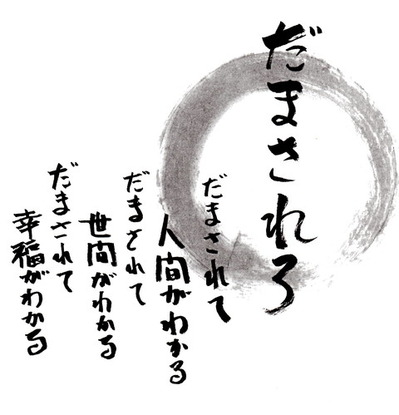 だまされろ
だまされて
人間がわかる
だまされて
世間がわかる
だまされて
幸福がわかる